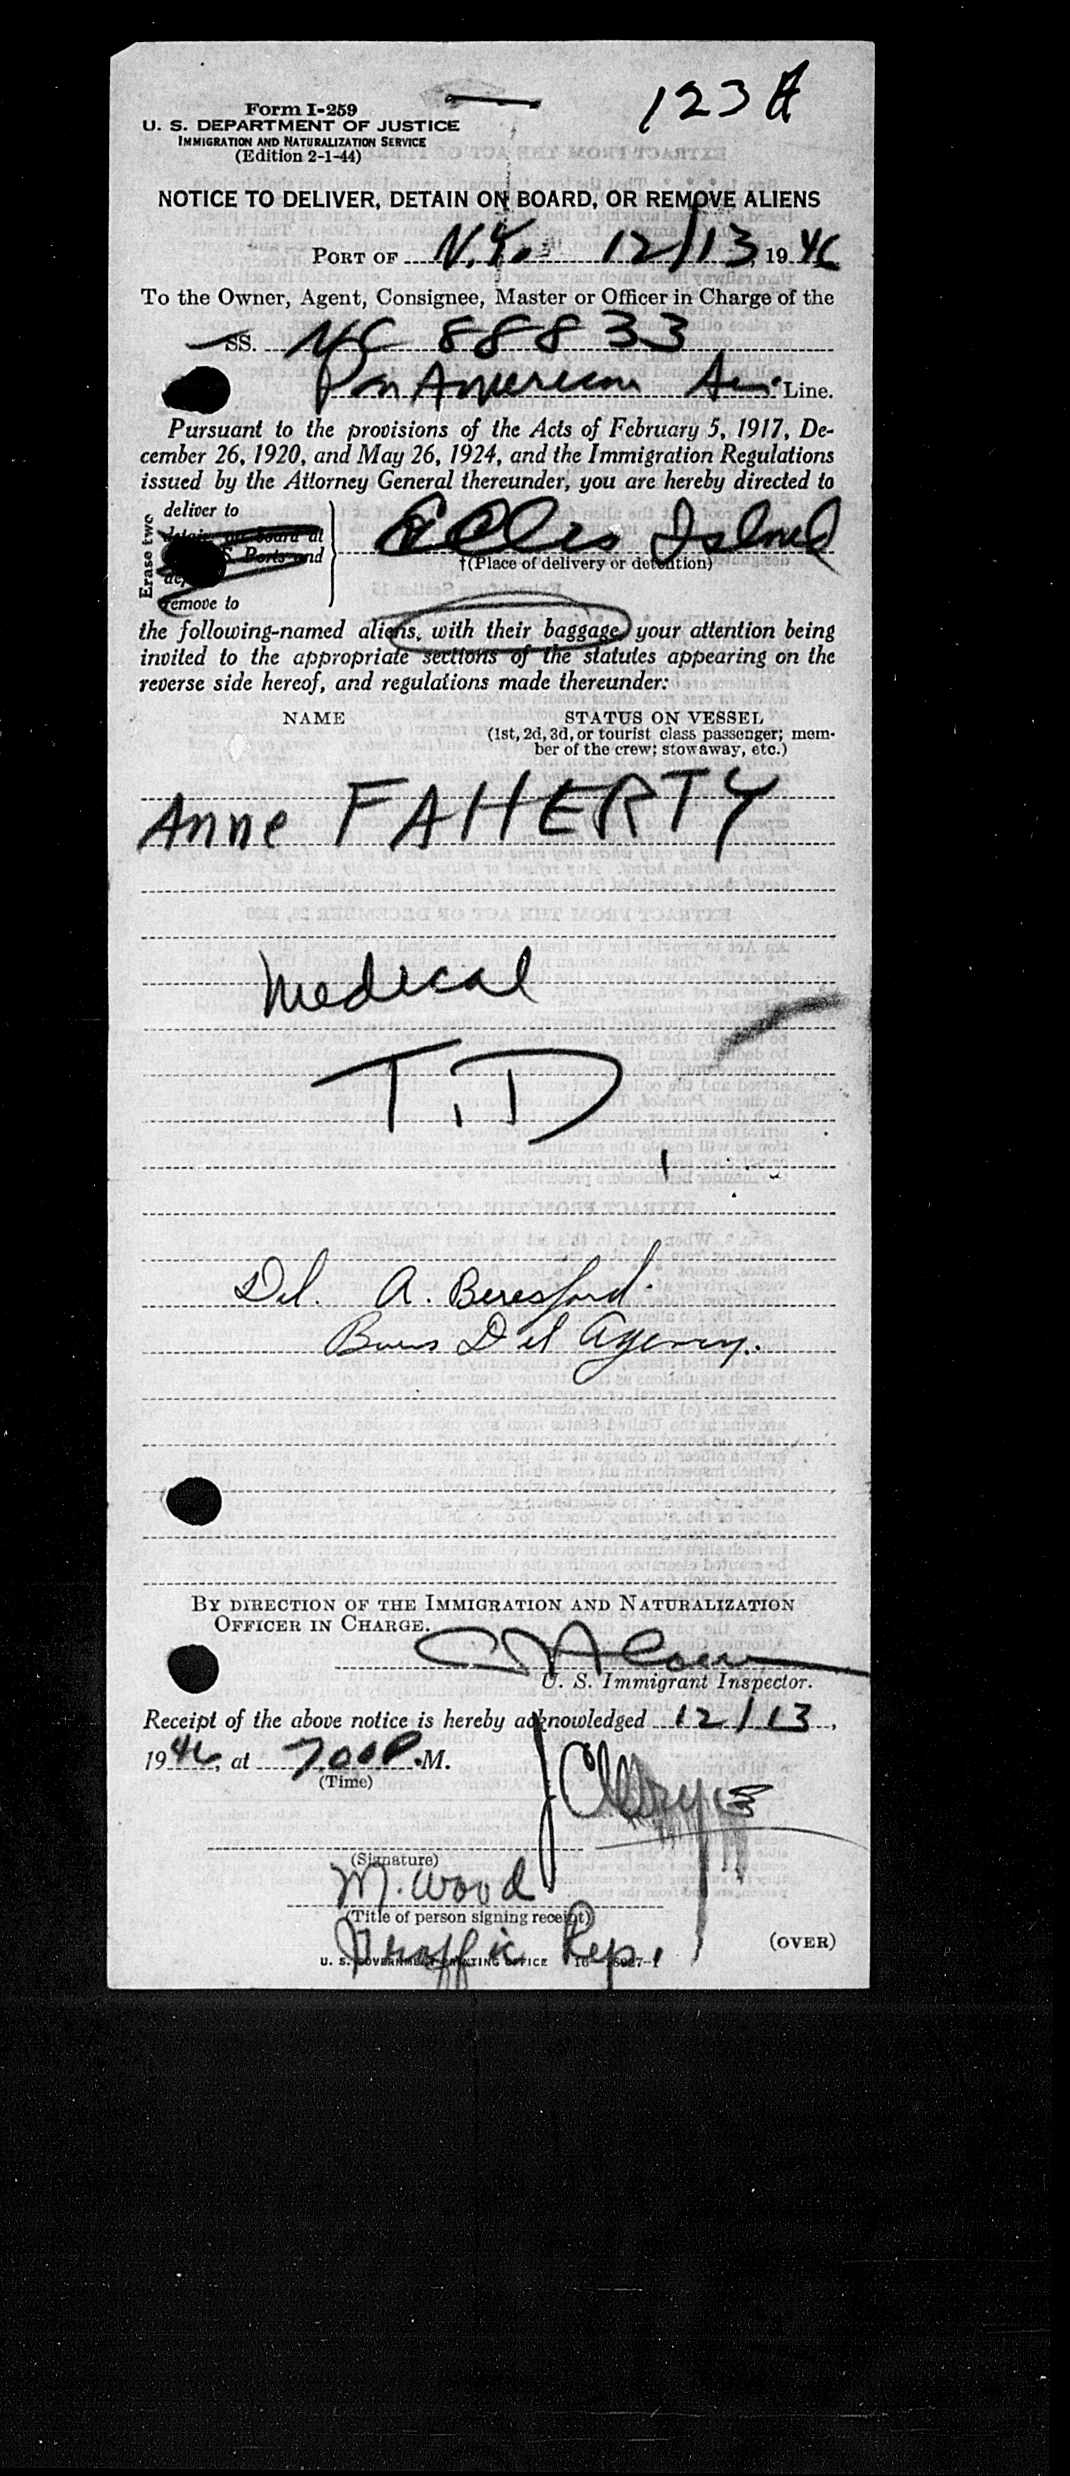 123 A
Form I-259
U. S. DEPARTMENT OF JUSTICE
IMMIGRATION AND NATURALIZATION SERVICE
(Edition 2-1-44)
NOTICE TO DELIVER, DETAIN ON BOARD, OR REMOVE ALIENS
PORT OF N.Y. 12/13, 1946
To the Owner, Agent, Consignee, Master or Officer in Charge of the
SS. NC 88833
Pan American Air Line.
Pursuant to the provisions of the Acts of February 5, 1917, De-
cember 26, 1920, and May 26, 1924, and the Immigration Regulations
issued by the Attorney General thereunder, you are hereby directed to
Erase two
deliver to
detain on board at
Ports and
remove to
Ellis Island
†(Place of delivery or detention)
the following-named aliens, with their baggage, your attention being
invited to the appropriate sections of the statutes appearing on the
reverse side hereof, and regulations made thereunder:
NAME STATUS ON VESSEL
(1st, 2d, 3d, or tourist class passenger; mem-
ber of the crew; stowaway, etc.)
Anne FAHERTY
Medical
T.D
Del. A. Beresford.
Del Agency.
BY DIRECTION OF THE IMMIGRATION AND NATURALIZATION
OFFICER IN CHARGE.
U. S. Immigrant Inspector.
Receipt of the above notice is hereby acknowledged 12/13,
1946, at 7.00 P.M.
(Time)
(Signature)
M. Wood
(Title of person signing receipt)
Traffic Rep.
(OVER)
U. S. GOVERNMENT PRINTING OFFICE